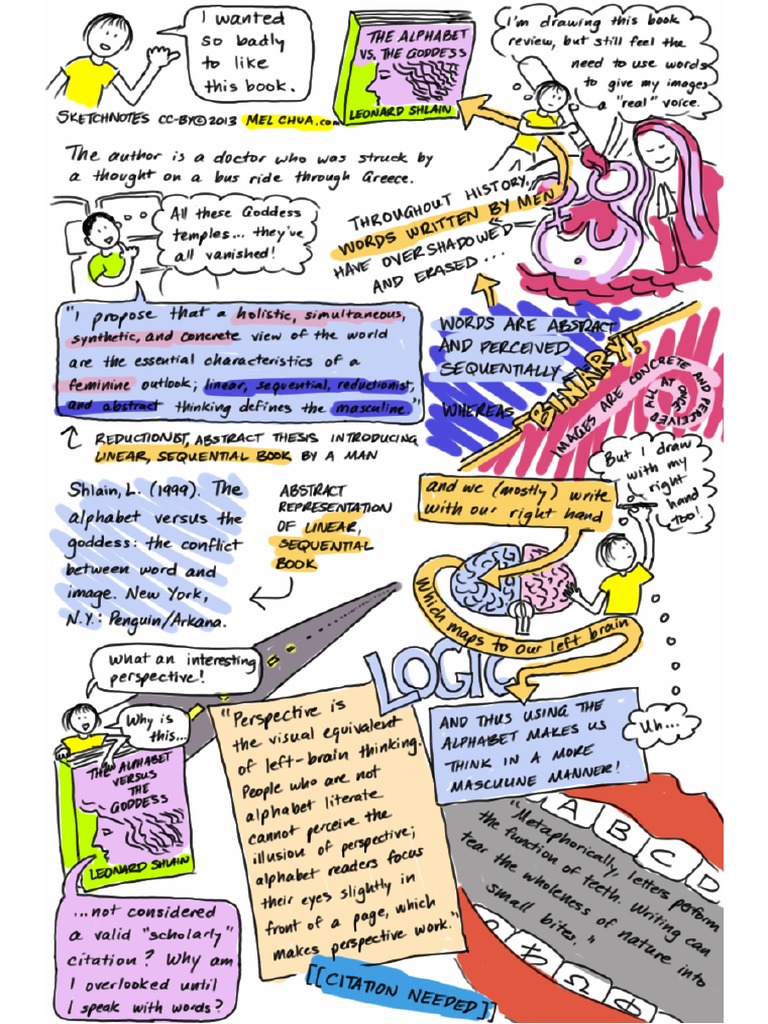 I wanted
so badly
to like
this book.
THE ALPHABET
VS. THE GODDESS
LEONARD SHLAIN
I'm drawing this book
review, but still feel the
need to use words
to give my images
a "real" voice.
SKETCHNOTES CC-BY©2013 MELCHUA.com
The author is a doctor who was struck by
a thought on a bus ride through Greece.
All these Goddess
temples... they've
all vanished!
THROUGHOUT HISTORY,
WORDS WRITTEN BY MEN
HAVE OVERSHADOWED
AND ERASED...
"I propose that a holistic, simultaneous,
synthetic, and concrete view of the world
are the essential characteristics of a
feminine outlook; linear, sequential, reductionist,
and abstract thinking defines the masculine."
WORDS ARE ABSTRACT
AND PERCEIVED
SEQUENTIALLY
WHEREAS
BINARY!
IMAGES ARE CONCRETE AND PERCEIVED
ALL AT
ONCE
REDUCTIONIST, ABSTRACT THESIS INTRODUCING
LINEAR, SEQUENTIAL BOOK BY A MAN
But I draw
with my
right
hand
too!
Shlain, L. (1999). The
alphabet versus the
goddess: the conflict
between word and
image. New York,
N.Y.: Penguin/Arkana.
ABSTRACT
REPRESENTATION
OF LINEAR,
SEQUENTIAL
BOOK
and we (mostly) write
with our right hand
Which maps to our left brain
LOGIC
What an interesting
perspective!
Why is
this...
THE ALPHABET
VERSUS
THE
GODDESS
LEONARD SHLAIN
"Perspective is
the visual equivalent
of left-brain thinking.
People who are not
alphabet literate
cannot perceive the
illusion of perspective;
alphabet readers focus
their eyes slightly in
front of a page, which
makes perspective work."
[[CITATION NEEDED]]
AND THUS USING THE
ALPHABET MAKES US
THINK IN A MORE
MASCULINE MANNER!
Uh...
A B C D
"Metaphorically, letters perform
the function of teeth. Writing can
tear the wholeness of nature into
small bites."
Ω Φ
...not considered
a valid "scholarly"
citation? Why am
I overlooked until
I speak with words?